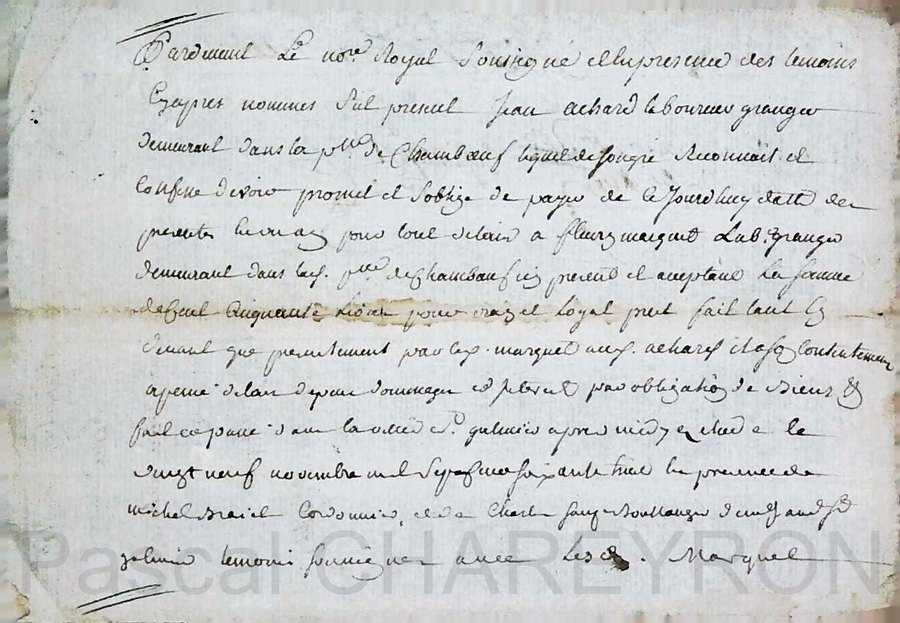 Pardevant Le nore Royal Soussigné et En presence des temoins
Cy apres nommes fut present Jean achard laboureur granger
demeurant dans la psse de Chambœuf lequel de son gré Reconnait et
Confesse devoir promet et s'oblige de payer de Ce Jourdhuy datte des
presentes en un an pour tout delaie a fleury marquet Lab. granger
demeurant dans lad. psse de Chambœuf icy present et aceptant La somme
de Cent Cinquante Livres pour vray et Loyal pret fait tant Cy
devant que presentement par led. marquet aud. achard et a son Contentement
a peine de tous depens dommages par obligation de Biens &
fait et passé dans la ville de St. galmier apres midy le
vingt neuf novembre mil sept cent soixante huit en presence de
michel Cordonnier, et de Charles Boullanger demt aud St
galmier temoins soussignez avec Led. Marquet
Pascal CHAREYRON